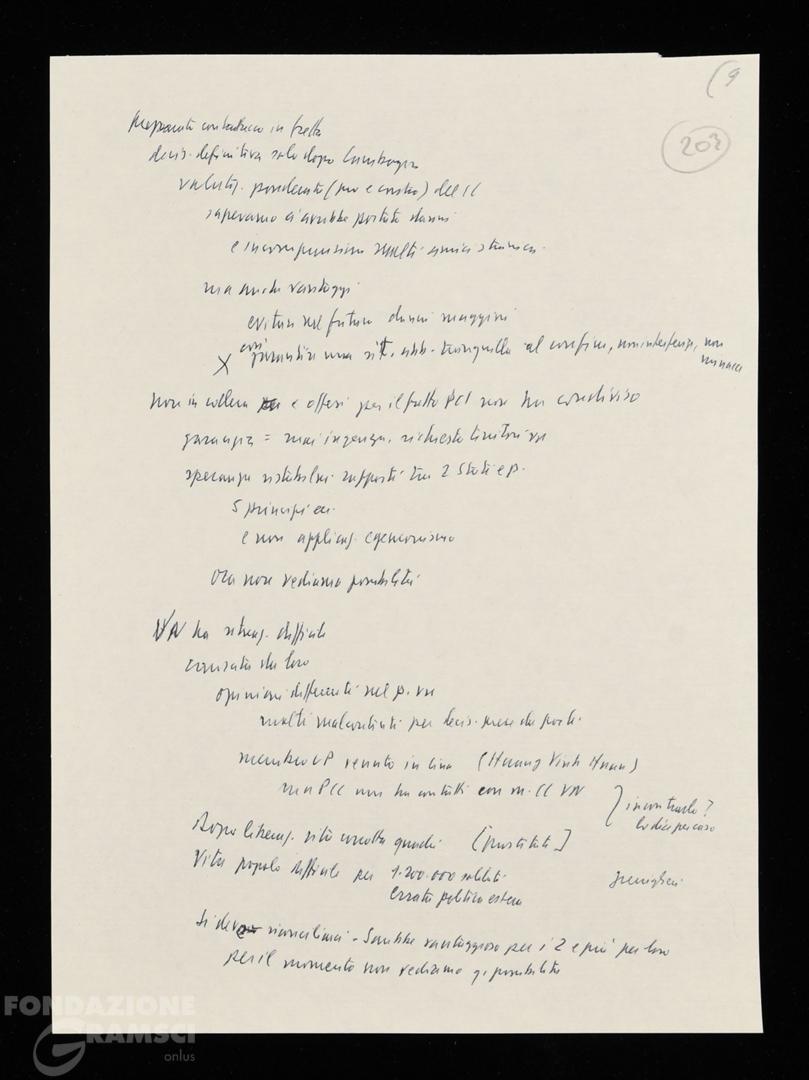 (9
203
Preparato contrattacco in fretta
decis. definitiva solo dopo Cambogia
valutaz. ponderata (pro e contro) del CC
sapevamo ci avrebbe portato danni
e incomprensioni molti amici stranieri
ma anche vantaggi
evitare nel futuro danni maggiori
X così garantire una sit. abb. tranquilla al confine, non interferenze, non minacce
non in collera e offesi per il fatto PCI non ha condiviso
garanzia = mai ingerenza, richieste territor.
speranza ristabilire rapporti tra 2 Stati e p.
5 principi ecc.
e non applicaz. egemonismo
Ora non vediamo possibilità
VN ha situaz. difficile
causata da loro
opinioni differenti nel p. vn
molti malcontenti per decis. prese da parte
membro UP venuto in Cina (Huang Vinh Huan)
ma PCC non ha contatti con m. CC VN
incontrarlo?
lo dice per caso
Dopo liberaz. città condotta quadri [prostitute]
Vita popolo difficile per 1.200.000 soldati
errata politica estera
Si deve riconciliarci - Sarebbe vantaggioso per i 2 e più per loro
per il momento non vediamo q. possibilità
FONDAZIONE
GRAMSCI
onlus